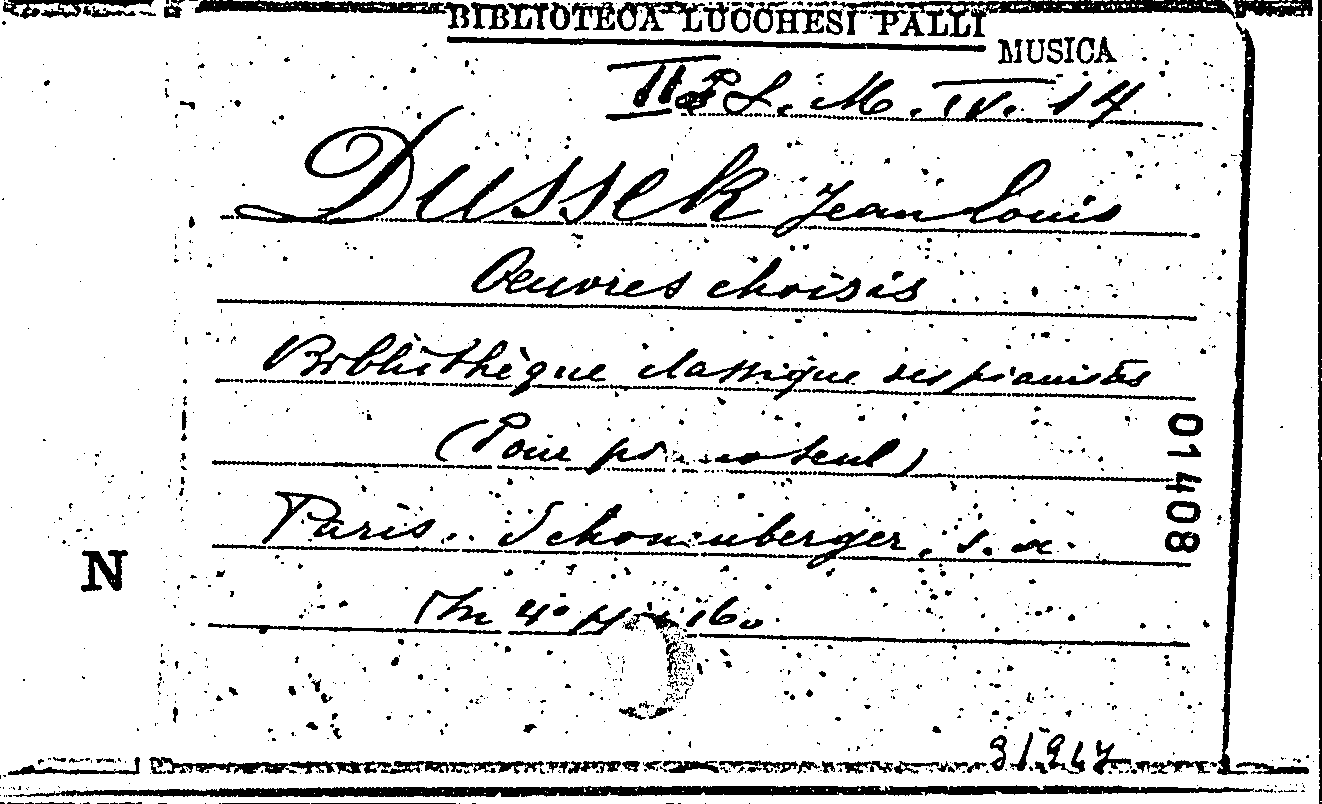 BIBLIOTECA LUCCHESI PALLI
MUSICA
II S. L. M. IV. 14
Dussek Jean Louis
Oeuvres choisis
Bibliothèque classique des pianistes
(Pour piano seul)
Paris. Schonenberger, s. a.
(In 4° pp. 160
01408
N